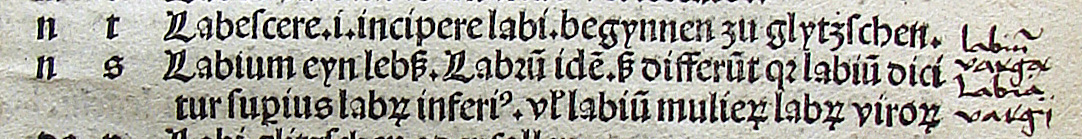 n t Labeſcere.i.incipere labi.begynnen zu glytzſchen.
n s Labium eyn lebß. Labrū idē. ß differūt qꝛ labiū dici
tur ſupius labꝝ inferiꝰ. vl̕ labiū mulieꝝ labꝝ viroꝝ
labiū
varga
Labia
vargi